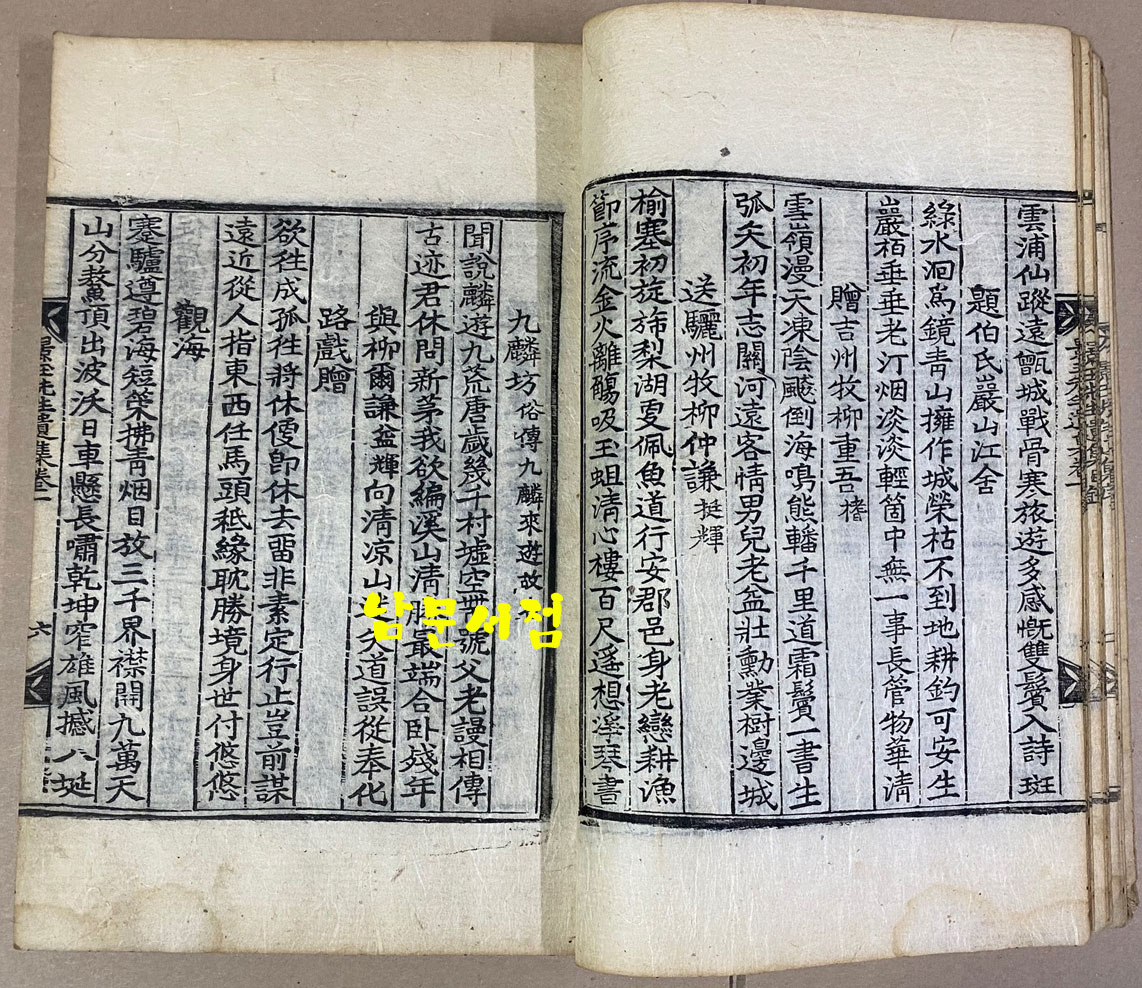 雲浦仙蹤遠甑城戰骨寒旅遊多感慨雙鬢入詩斑
題伯氏巖山江舍
綠水洄爲鏡青山擁作城榮枯不到地耕釣可安生
巖栢垂垂老汀烟淡淡輕箇中無一事長管物華清
贈吉州牧柳重吾㯖
雪嶺漫天凍陰飇倒海鳴熊轓千里道霜鬢一書生
弧矢初年志關河遠客情男兒老益壯勳業樹邊城
送驪州牧柳仲謙挺輝
楡塞初旋斾梨湖更佩魚道行安郡邑身老戀耕漁
節序流金火離觴吸玉蛆清心樓百尺遙想滯琴書
九麟坊俗傳九麟來遊故
聞說麟遊九荒唐歲幾千村墟空號父老謾相傳
古迹君休問新茅我欲編溪山淸最端合卧殘年
與柳爾謙益輝向淸凉山道誤從奉化
路戲贈
欲徃成孤徃將休便卽休去留非素定行止豈前謀
遠近從人指東西任馬頭秪緣耽勝境身世付悠悠
觀海
蹇驢遵碧海短策拂青烟日放三千界襟開九萬天
山分鰲頂出波沃日車懸長嘯乾坤窄雄風撼八埏
六
남문서점